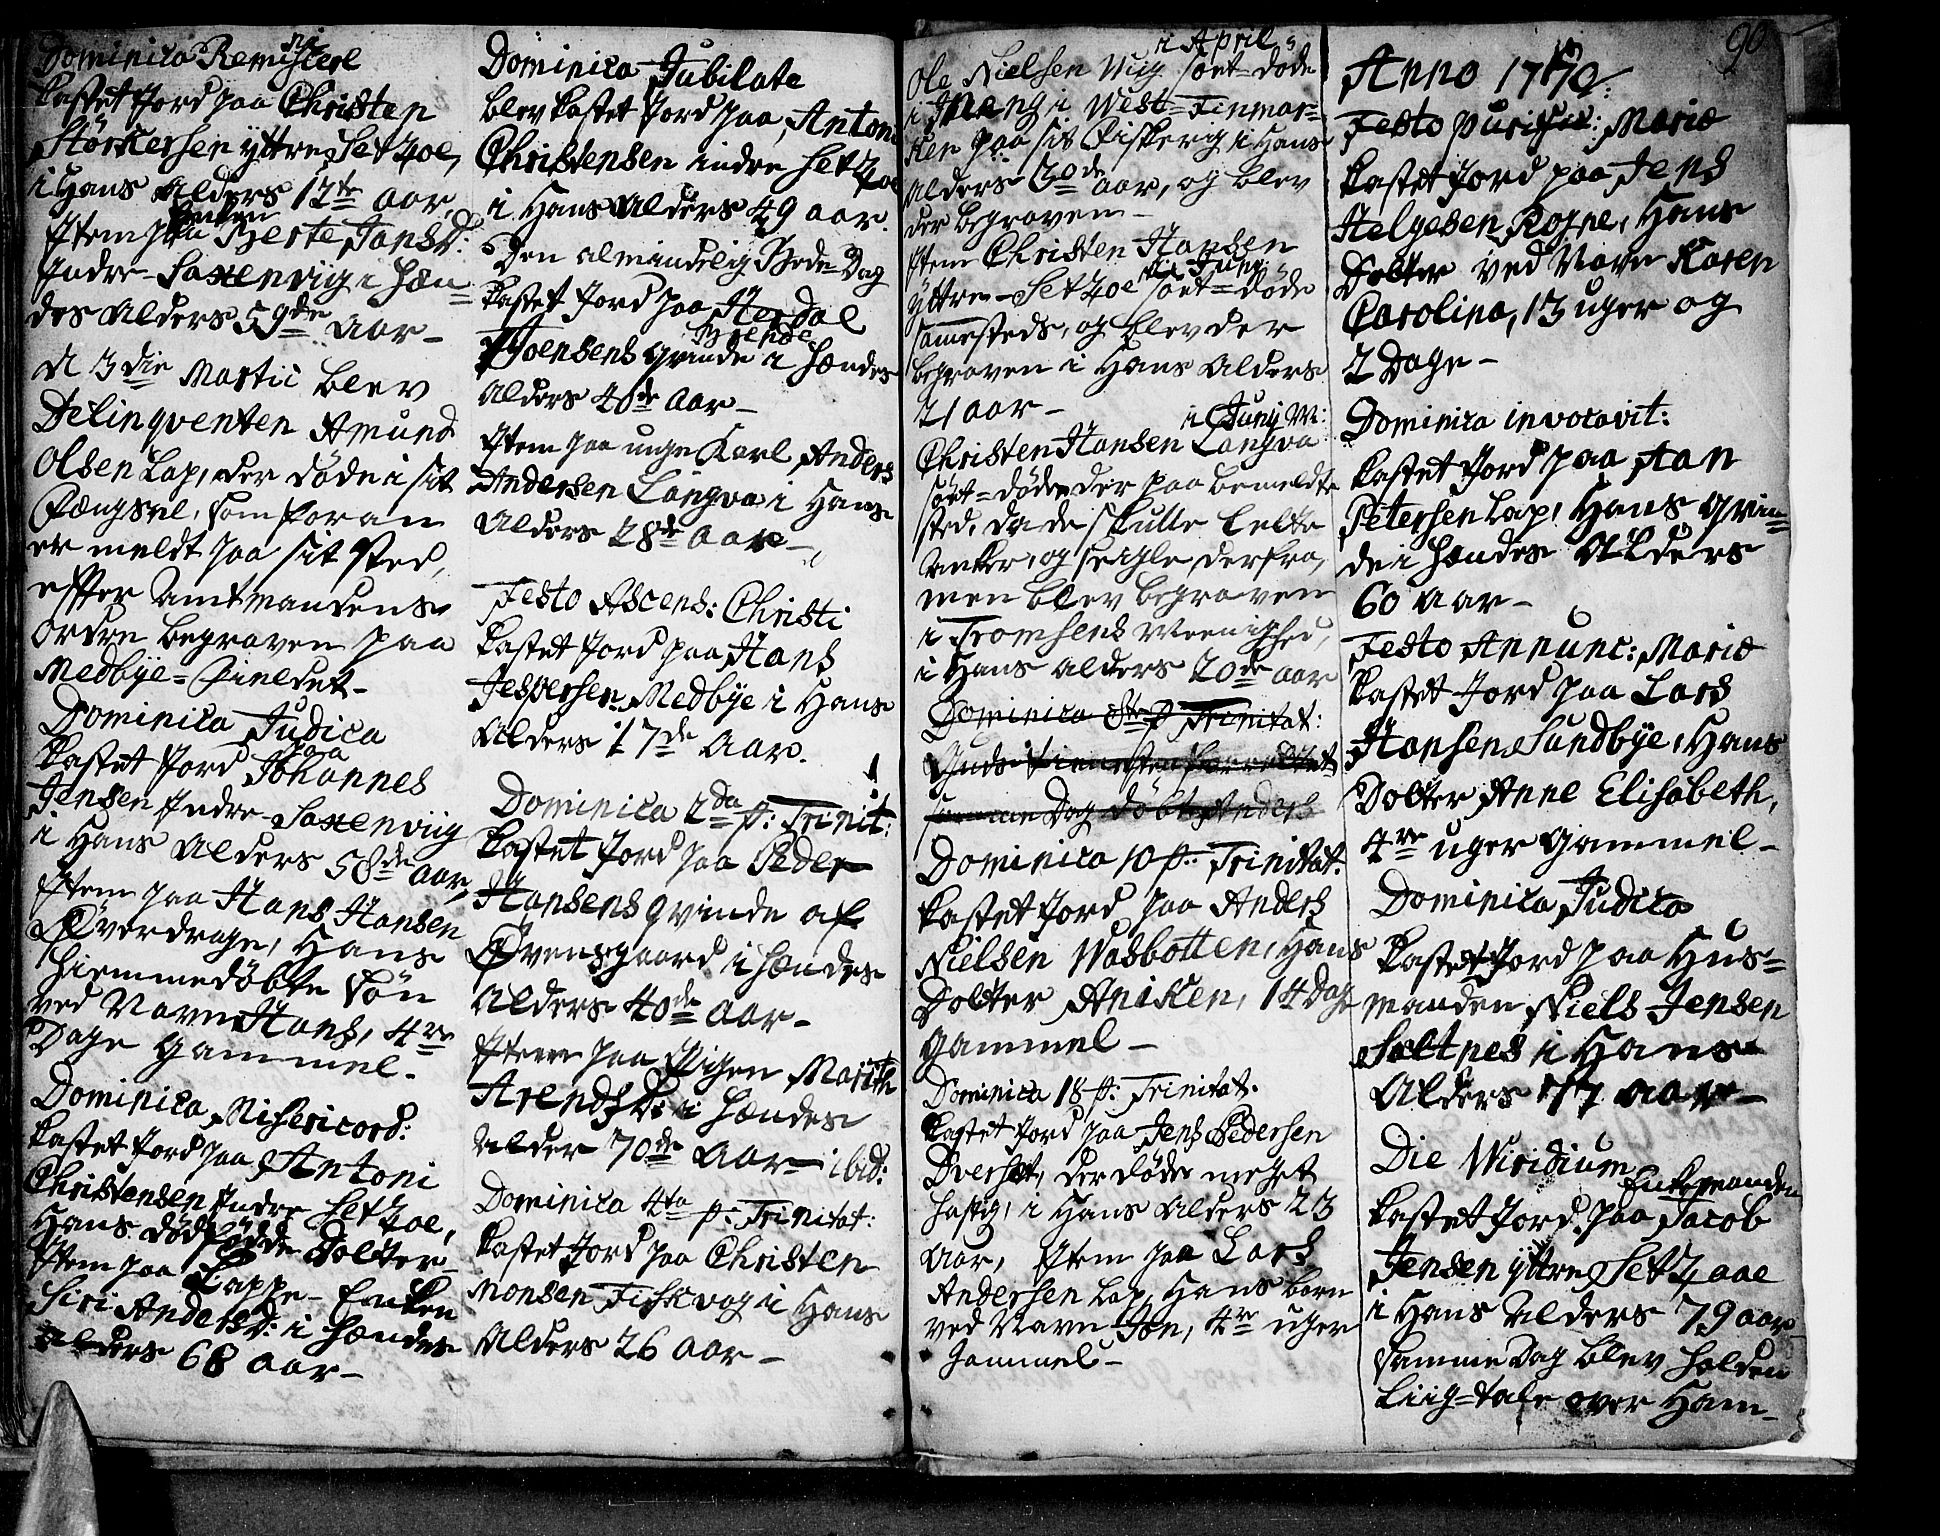 Dominica Reminiscere
kastet Jord paa Christen
Störkersen yttre Setzoe,
i Hans Alders 12te Aar,
Item paa Enken Berte JonsD:
Indre Saxenviig i Hæn=
des Alders 59de Aar -
d 3die Martii blev
Delinqventen Amund
Olsen Lap, der døde i sit
Fængsel, som foran
er meldt paa sit sted,
effter Amtmandens
Ordre begraven paa
Medbÿe=Fieldet -
Dominica Judica
kastet Jord paa Johannes
Jensen Indre Saxenviig
i Hans Alders 58de Aar,
Item paa Hans Hansen
Øverdrage, Hans
hiemmedöbte Sön
ved Navn Hans, 4re
Dage gammel -
Dominica Misericord:
kastet Jord paa Antoni
Christensen Indre Setzoe,
Hans dödfödde Dotter
Item paa Lappe-Enken
Siri AndersD: i Hændes
Alders 68 Aar -
Dominica Jubilate
blev kastet Jord paa Antoni
Christensen indre Setzoe
i Hans Alders 49 Aar.
Den almindelig Bede-Dag
kastet Jord paa
Joensens Qvinde i Hændes
Alders 40de Aar -
Item paa unge Karl Anders
Andersen Langva i Hans
Alders 28de Aar -
Festo Ascens: Christi
kastet Jord paa Hans
Jespersen Medbÿe i Hans
Alders 17de Aar.
Dominica 2da p: Trinit:
kastet Jord paa Peder
Hansens qvinde af
Øvensgaard i Hændes
Alders 40de Aar -
Item paa Pigen Marith
ArendsD: i Hændes
Alder 70de Aar - ibid:
Dominica 4ta p: Trinitat:
kastet Jord paa Christen
Monsen Fiskvog i Hans
Alders 26 Aar -
i April
Ole Nielsen Wiig söet=döde
i West=Finmar=
ken paa sit Fiskerie, i Hans
Alders 30de Aar, og blev
der begraven -
Item Christen Hansen
yttre-Setzoe i Junj söet=döde
sammesteds, og blev der
begraven i Hans Alders
21 aar -
i Junij M:
Christen Hansen Langva
söet=döde der paa bemeldte
sted, da de skulle lette
Anker, og seigle derfra,
men blev begraven
i Tromsens Meenighed,
i Hans Alders 20de aar
Dominica 8de p Trinitat:
Guds Tienesten forrettet
samme Dag döbt Anders
Dominica 10 p: Trinitat:
kastet Jord paa Anders
Nielsen Wasbotten, Hans
Dotter Aniken, 14 Dage
gammel -
Dominica 18 p: Trinitat:
kastet Jord paa Jens Pedersen
Overset, der döde meget
hastig, i Hans Alders 23
Aar, Item paa Lars
Andersen Lap, Hans barn
ved Navn Jon, 4re uger
gammel -
90
Anno 1770:
Festo Purific: Mariæ
kastet Jord paa Jens
Helgesen Rogne, Hans
Dotter ved Navn Karen
Carolina, 13 uger og
2 Dage -
Dominica invocavit:
kastet Jord paa Aan
Petersen Lap, Hans Qvin=
de i Hændes Alders
60 Aar -
Festo Annunc: Mariæ
kastet Jord paa Lars
Hansen Sundbÿe, Hans
Dotter Anne Elisabeth,
4re uger gammel -
Dominica Judica
kastet Jord paa Hus=
manden Niels Jensen
Saltnes i Hans
Alders 77 Aar -
Die Viridium
kastet Jord paa Enkemanden Jacob
Jensen yttre Setzaae
i Hans Alders 79 aar
Samme Dag blev holden
Liig=tale over Ham -